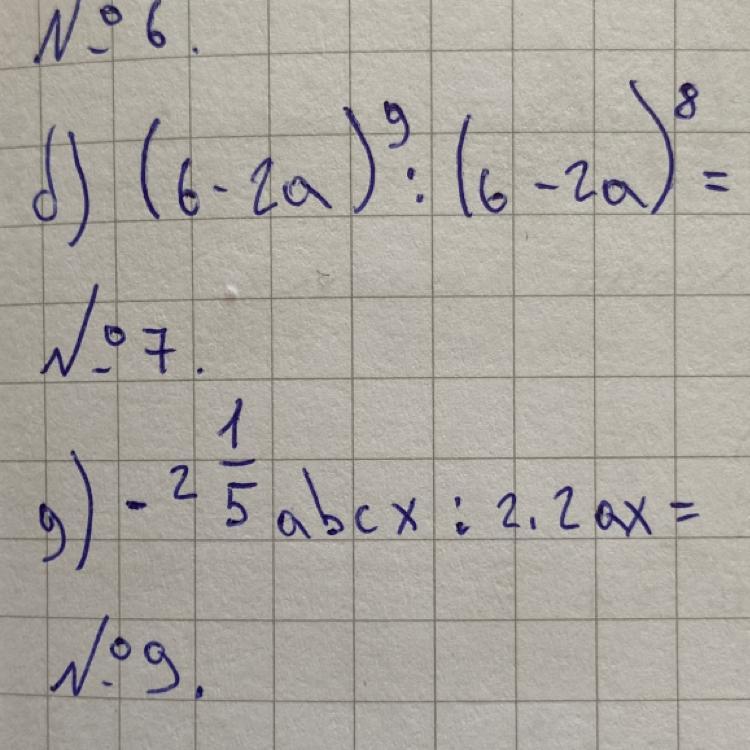 № 6.
d) (6 - 2a)⁹ : (6 - 2a)⁸ =
№ 7.
g) - 2 1/5 abcx : 2.2ax =
№ 9.